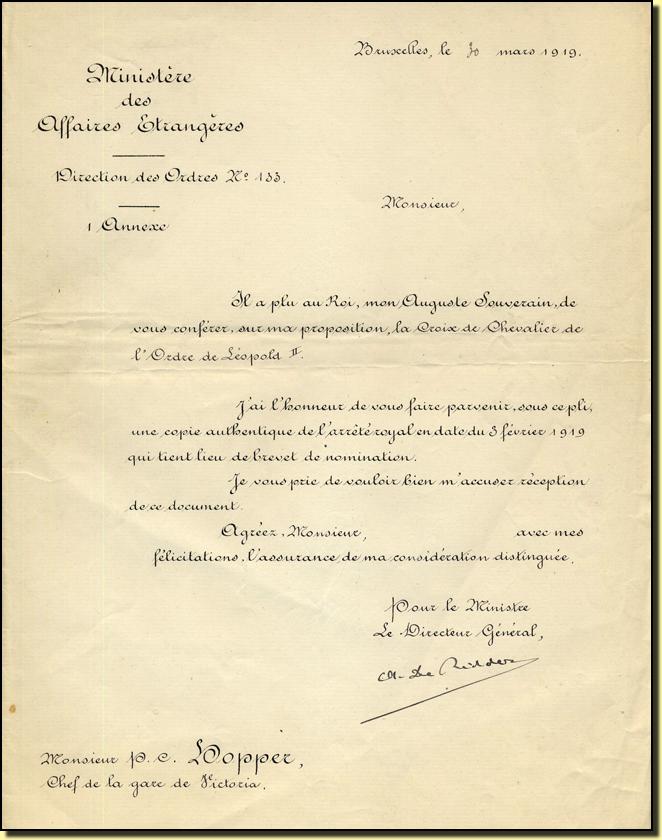 Bruxelles, le 30 mars 1919.
Ministère
des
Affaires Etrangères
Direction des Ordres Nº 133.
1 Annexe
Monsieur,
Il a plu au Roi, mon Auguste Souverain, de
vous conférer, sur ma proposition, la Croix de Chevalier de
l'Ordre de Léopold II.
J'ai l'honneur de vous faire parvenir, sous ce pli,
une copie authentique de l'arrêté royal en date du 3 février 1919
qui tient lieu de brevet de nomination.
Je vous prie de vouloir bien m'accuser réception
de ce document.
Agréez, Monsieur, avec mes
félicitations, l'assurance de ma considération distinguée.
Pour le Ministre
Le Directeur Général,
De Ridder
Monsieur P. C.
Chef de la gare de Victoria.